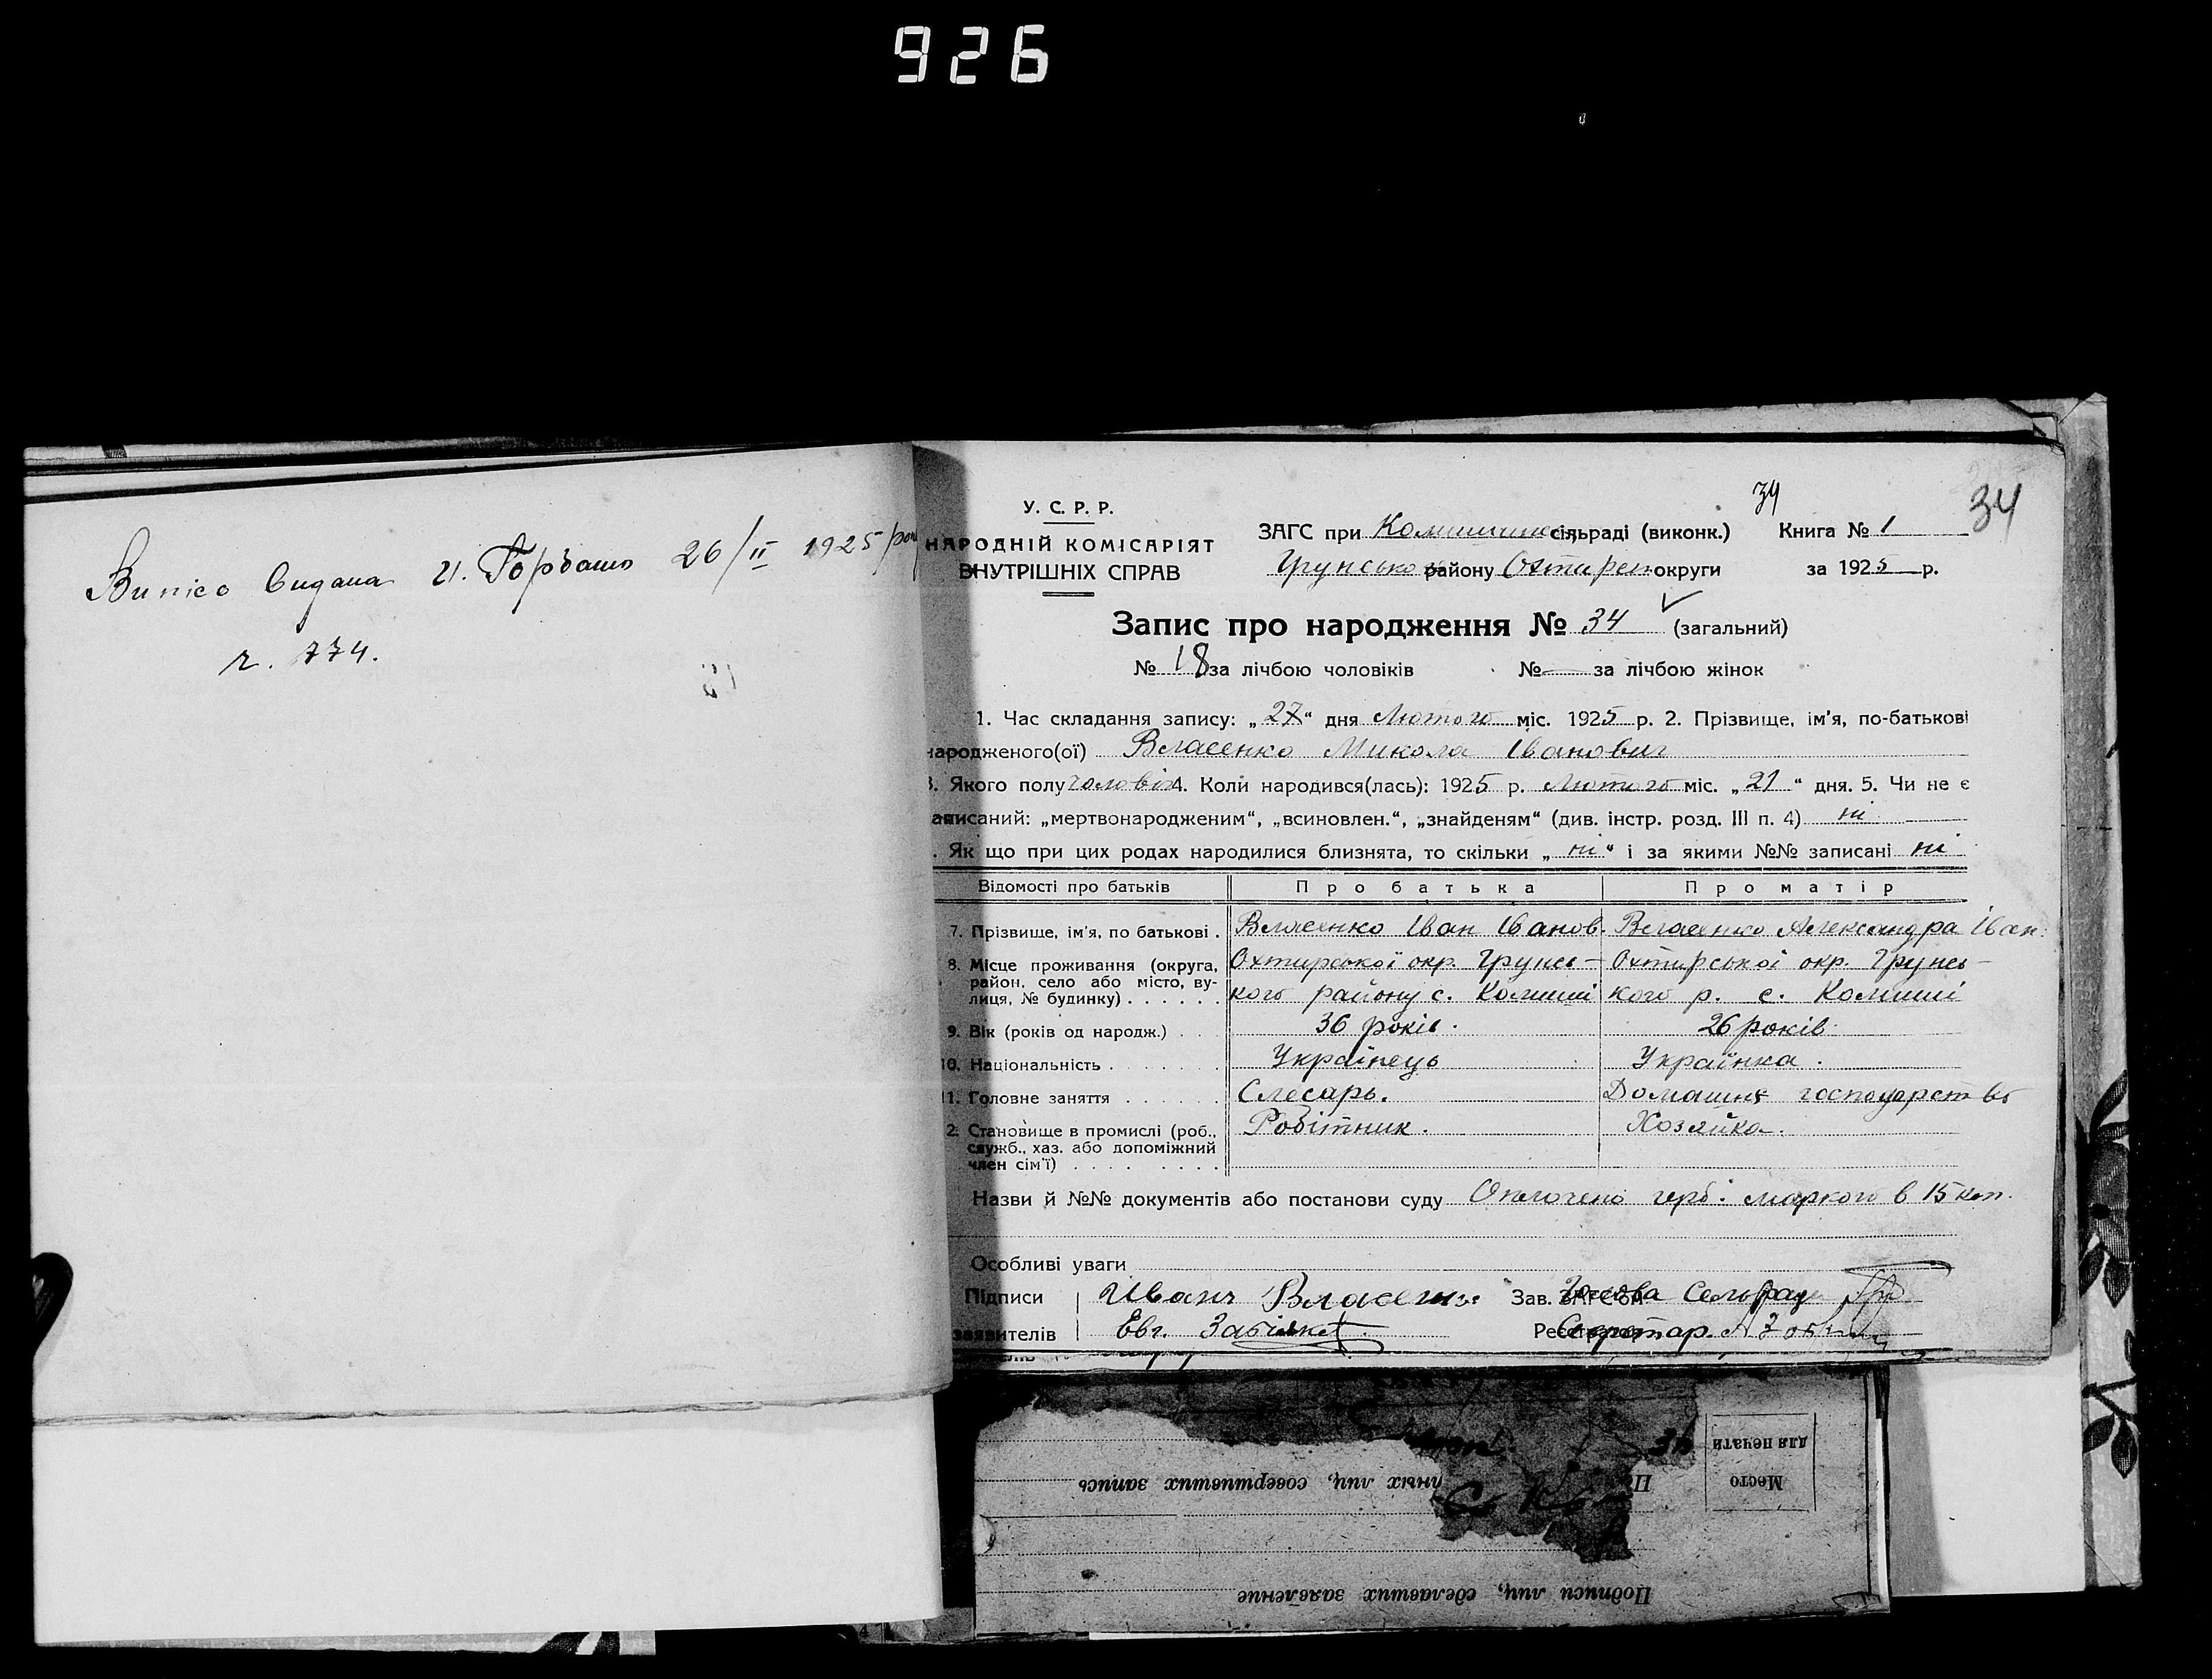 926
Випісь видана И. Горбашо 26/II 1925 рок
г. 774.
34
34
У. С. Р. Р.
НАРОДНІЙ КОМІСАРІЯТ
ВНУТРІШНІХ СПРАВ
ЗАГС при сільраді (виконк.) Книга № 1
Грунсько району Охтирск округи за 1925 р.
Запис про народження № 34 (загальний)
№ 18 за лічбою чоловіків № — за лічбою жінок
1. Час складання запису: „27“ дня Лютого міс. 1925 р. 2. Прізвище, ім'я, по-батькові
народженого(ої) Власенко Микола Іванович
3. Якого полу чоловік 4. Коли народився(лась): 1925 р. Лютого міс. „21“ дня. 5. Чи не є
записаний: „мертвонародженим“, „всиновлен.“, „знайденям“ (див. інстр. розд. III п. 4) ні
. Як що при цих родах народилися близнята, то скільки „ні“ і за якими №№ записані ні
Відомості про батьків Про батька Про матір
7. Прізвище, ім'я, по батькові . Власенко Іван Іванов. Власенко Александра Іван.
8. Місце проживання (округа, район, село або місто, вулиця, № будинку) . . . . . .
Охтирської окр. Грунсь- Охтирської окр. Грунсь-
кого району с. Комиші кого р. с. Комиші
9. Вік (років од народж.) . . 36 років. 26 років.
10. Національність . . . . . . . Українець Українка.
11. Головне заняття . . . . . . Слесарь. Домашнє господарство
12. Становище в промислі (роб., служб., хаз. або допоміжний член сім'ї) . . . . . . . . Робітник. Хозяйка.
Назви й №№ документів або постанови суду Оплочено герб. маркою в 15 коп.
Особливі уваги
Підписи Иванъ Власенко Зав. ЗАГС'ом Голова Сельради
заявителів Евг. Реєстратор Секретар.
Место
для печати
запись
ных лиц, совершивших
Подписи лиц, сделавших заявление